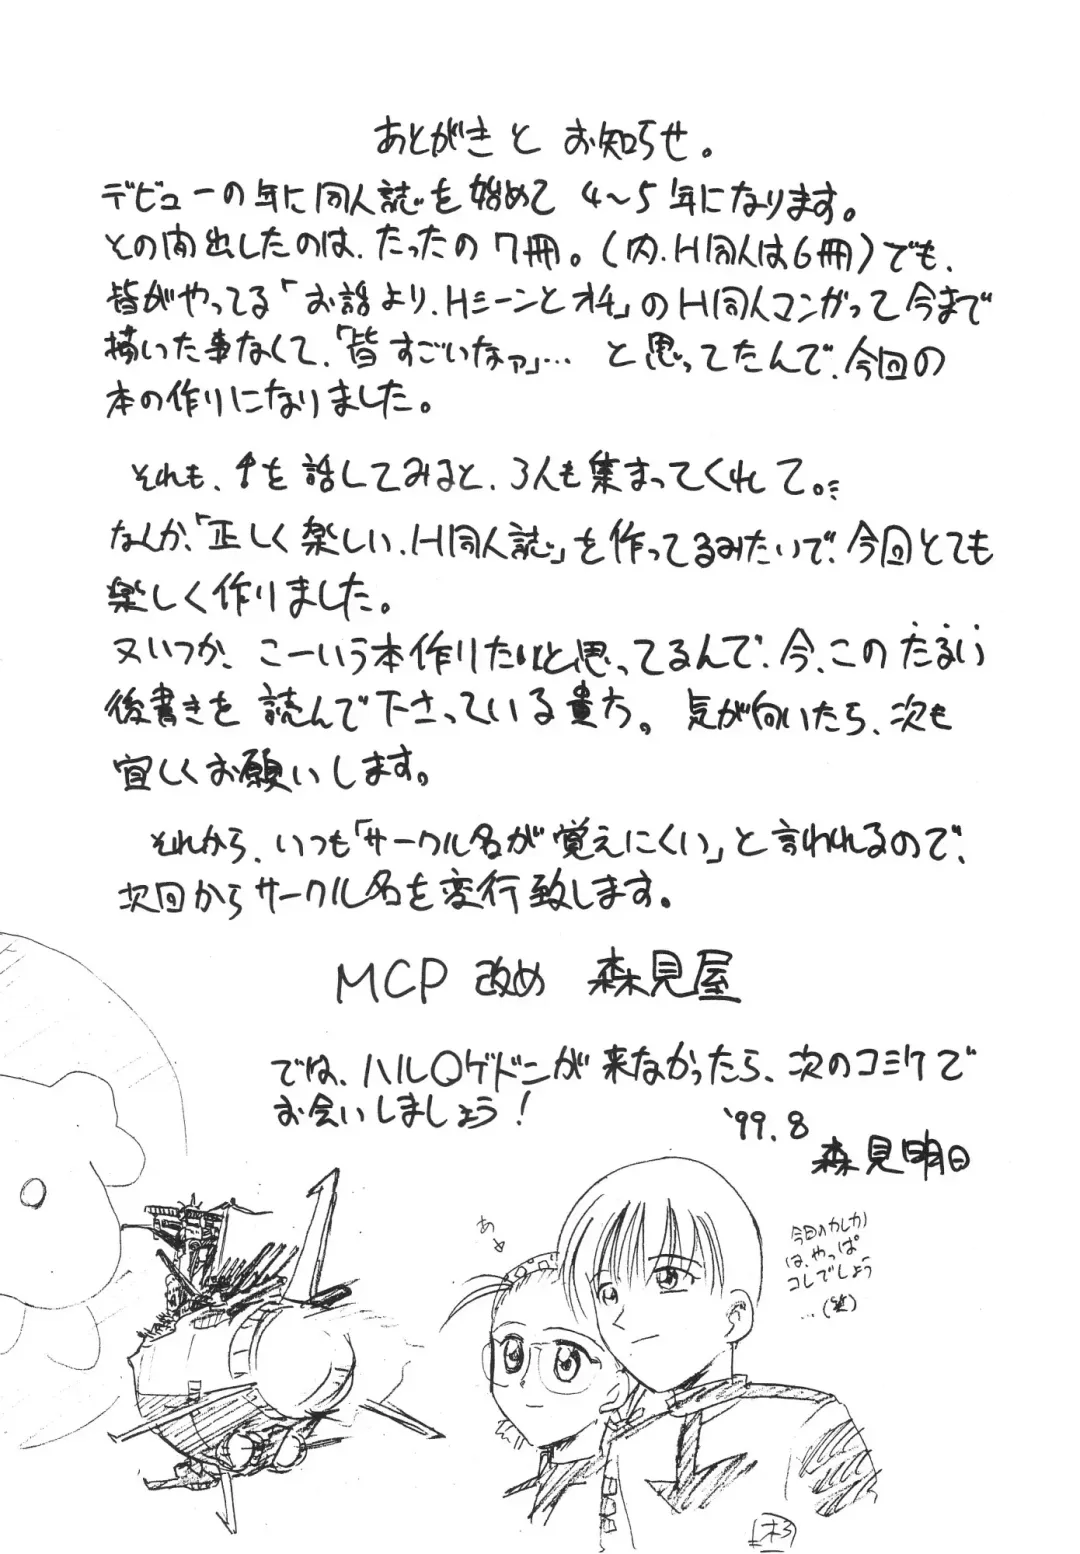 あとがき と お知らせ。
デビューの年に同人誌を始めて 4〜5年になります。
その間出したのは、たったの7冊。(内、H同人は6冊)でも、
皆がやってる「お話より、Hシーンとオチ」のH同人マンガって今まで
描いた事なくて、「皆すごいなァ」… と思ってたんで、今回の
本の作りになりました。
それも、↑を話してみると、3人も集まってくれて。
なんか、「正しく楽しい、H同人誌」を作ってるみたいで、今回とても
楽しく作りました。
又いつか、こーいう本作りたいと思ってるんで、今、このたるい
後書きを 読んで下さっている貴方。 気が向いたら、次も
宜しくお願いします。
それから、いつも「サークル名が覚えにくい」と言われるので、
次回からサークル名を変行致します。
MCP 改め 森見屋
では、ハル〇ゲドンが来なかったら、次のコミケで
お会いしましょう!
'99.8
森見明日
あ
今回のカレカノ
は、やっぱ
コレでしょう
…(笑)